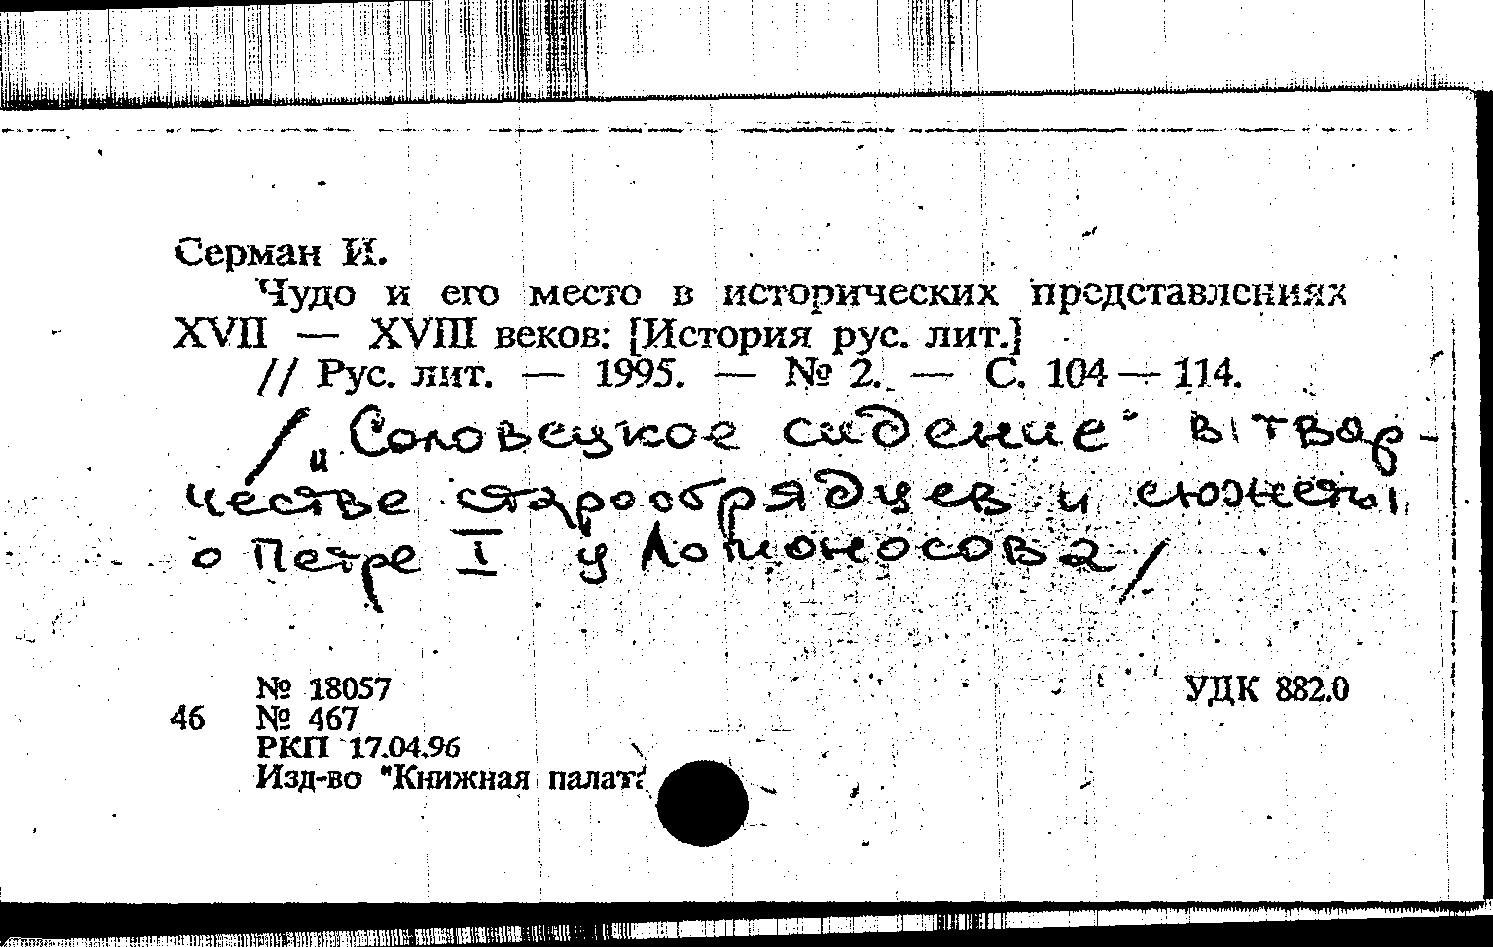 Серман И.
Чудо и его место в исторических представлениях
XVII — XVIII веков: [История рус. лит.]
// Рус. лит. — 1995. — № 2. — С. 104 — 114.
/ „Соловецкое сидение" в твор-
честве старообрядцев и сюжеты
о Петре I у Ломоносова /
№ 18057 УДК 882.0
46 № 467
РКП 17.04.96
Изд-во "Книжная палата